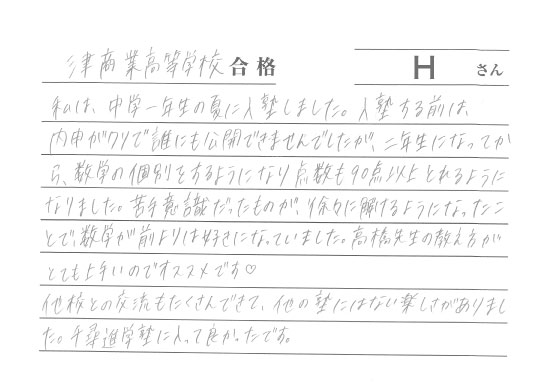 津商業高等学校 合格 H さん
私は、中学一年生の夏に入塾しました。入塾する前は、
内申がワリで誰にも公開できませんでしたが、二年生になってか
ら、数学の個別をするようになり点数も90点以上とれるように
なりました。苦手意識だったものが、徐々に解けるようになったこ
とで、数学が前よりは好きになっていました。高橋先生の教え方が
とても上手いのでオススメです♡
他校との交流もたくさんできて、他の塾にはない楽しさがありまし
た。千尋進学塾に入って良かったです。